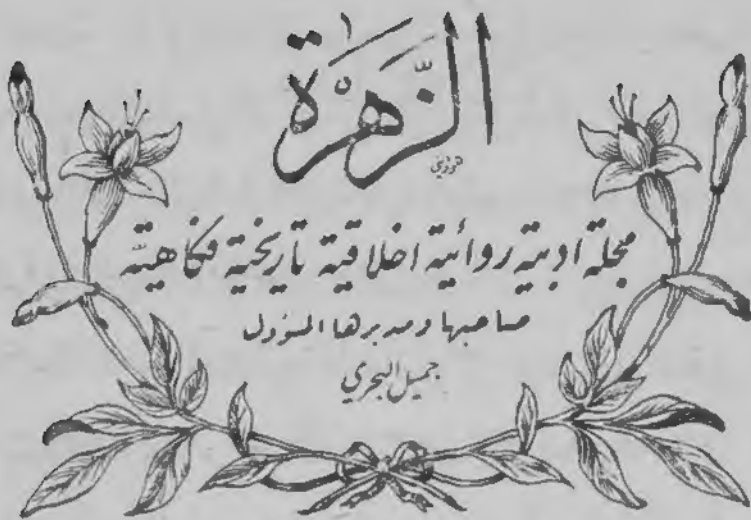 الزّهرة
مجلة ادبية روائية اخلاقية تاريخية فكاهية
صاحبها ومديرها المسؤول
جميل البحري